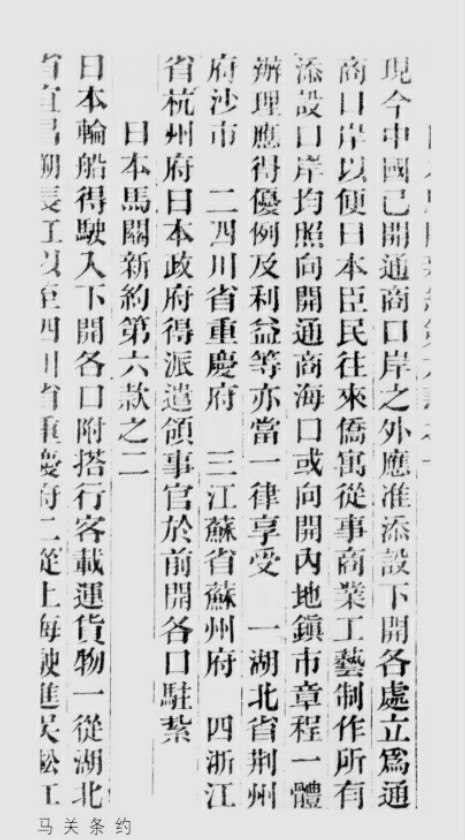 現今中國已開通商口岸之外應准添設下開各處立爲通
商口岸以便日本臣民往來僑寓從事商業工藝制作所有
添設口岸均照向開通商海口或向開內地鎮市章程一體
辦理應得優例及利益等亦當一律享受　一湖北省荆州
府沙市　二四川省重慶府　三江蘇省蘇州府　四浙江
省杭州府日本政府得派遣領事官於前開各口駐紮
日本馬關新約第六款之二
日本輪船得駛入下開各口附搭行客載運貨物一從湖北
省宜昌溯長江以至四川省重慶府二從上海駛進吳淞江
马关条约